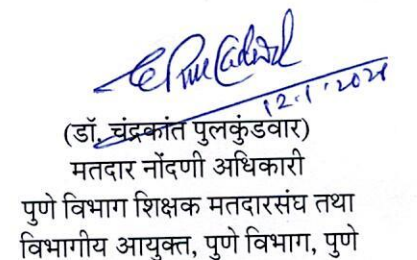 (डॉ. चंद्रकांत पुलकुंडवार)
मतदार नोंदणी अधिकारी
पुणे विभाग शिक्षक मतदारसंघ तथा
विभागीय आयुक्त, पुणे विभाग, पुणे